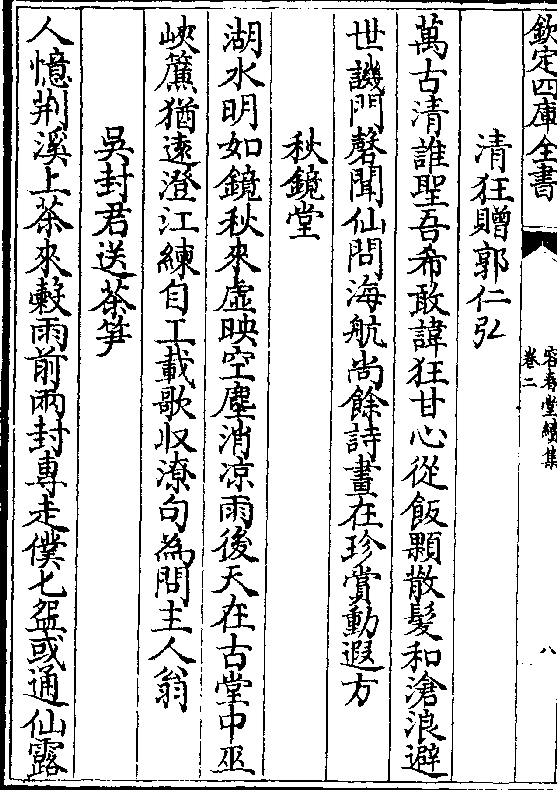 欽定四庫全書
容春堂續集
卷二
八
清狂贈郭仁弘
萬古清誰聖吾希敢諱狂甘心從飯顆散髮和滄浪避
世譏門磬聞仙問海航尚餘詩畫在珍賞動遐方
秋鏡堂
湖水明如鏡秋來虛映空塵消涼雨後天在古堂中巫
峽簾猶遠澄江練自工載歌收潦句為問主人翁
吳封君送茶笋
人憶荆溪上茶來穀雨前兩封専走僕七盌或通仙露